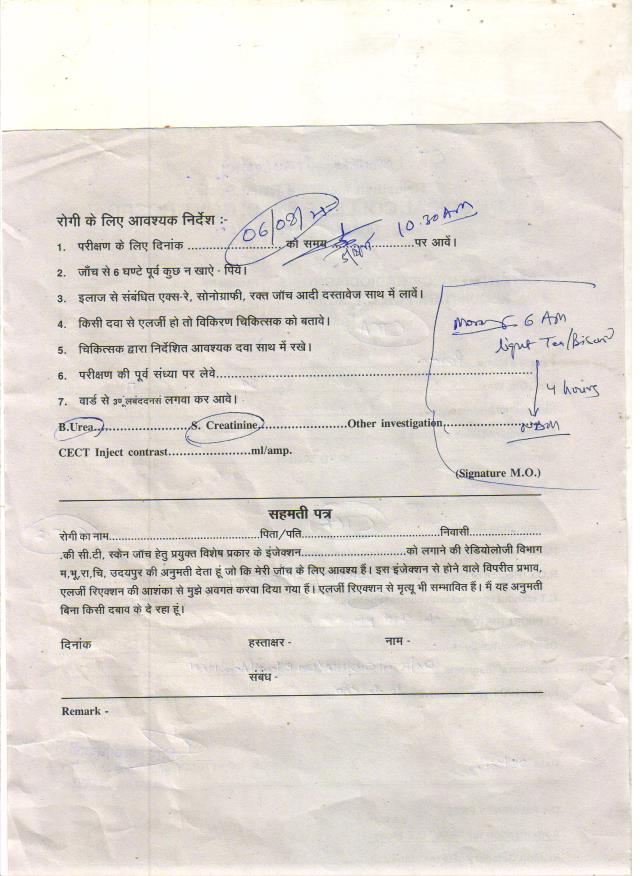 रोगी के लिए आवश्यक निर्देश :-
06/08/
10.30 AM
1. परीक्षण के लिए दिनांक .......................... को समय ......................पर आवें।
2. जाँच से 6 घण्टे पूर्व कुछ न खाऐ - पिये।
3. इलाज से संबंधित एक्स-रे, सोनोग्राफी, रक्त जाँच आदी दस्तावेज साथ में लावें।
4. किसी दवा से एलर्जी हो तो विकिरण चिकित्सक को बतावे।
5. चिकित्सक द्वारा निर्देशित आवश्यक दवा साथ में रखे।
6 AM
light Tea/
6. परीक्षण की पूर्व संध्या पर लेवे................................................................
4 hours
7. वार्ड से उ॰ूंलबंददनसं लगवा कर आवे।
B.Urea..........................S. Creatinine........................Other investigation........................
CECT Inject contrast......................ml/amp.
(Signature M.O.)
सहमती पत्र
रोगी का नाम..........................................पिता/पति......................................निवासी....................
.की सी.टी. स्केन जाँच हेतु प्रयुक्त विशेष प्रकार के इंजेक्शन.............................को लगाने की रेडियोलॉजी विभाग
म,भू,रा,चि, उदयपुर की अनुमती देता हूं जो कि मेरी जाँच के लिए आवश्य हैं। इस इंजेक्शन से होने वाले विपरीत प्रभाव,
एलर्जी रिएक्शन की आशंका से मुझे अवगत करवा दिया गया हैं। एलर्जी रिएक्शन से मृत्यू भी सम्भावित हैं। मैं यह अनुमती
बिना किसी दबाव के दे रहा हूं।
दिनांक हस्ताक्षर - नाम -
संबंध -
Remark -